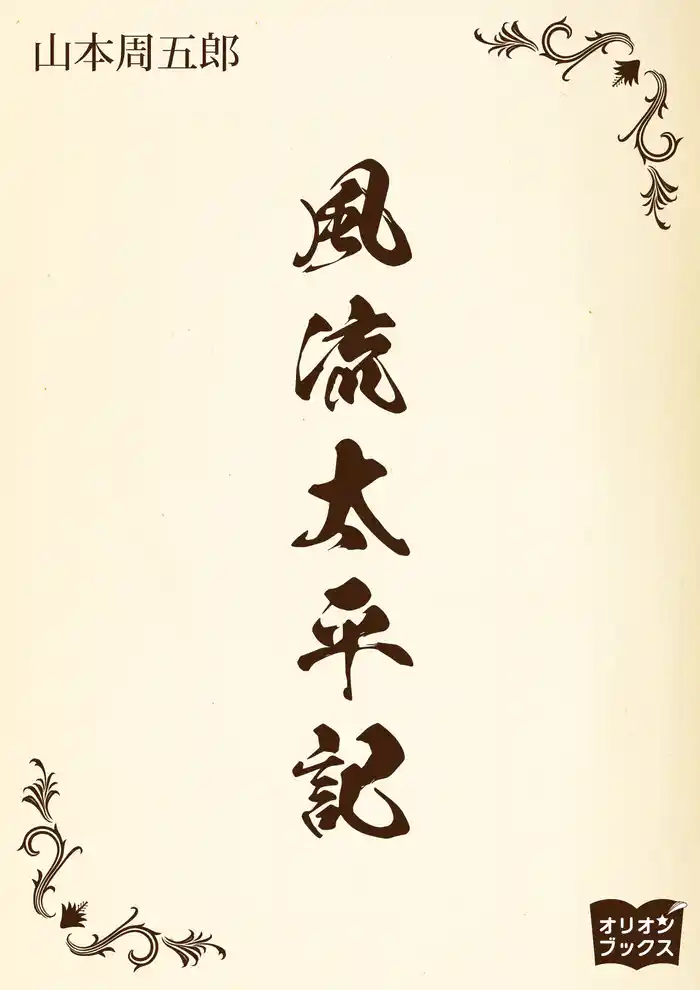 山本周五郎
風流太平記
オリオン
ブックス